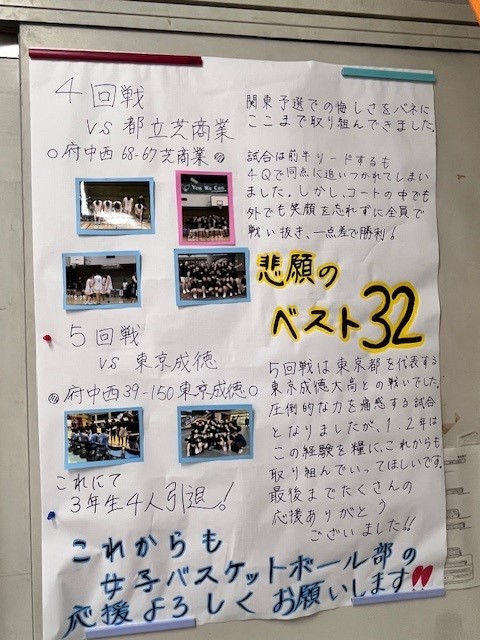 4回戦
vs 都立芝商業
○府中西 68-67芝商業●
関東予選での悔しさをバネに
ここまで取り組んできました。
試合は前半リードするも
4Qで同点に追いつかれてしまい
ました。しかし、コートの中でも
外でも笑顔を忘れずに全員で
戦い抜き、一点差で勝利!
You We Can
悲願の
ベスト32
5回戦
vs 東京成徳
●府中西39-150東京成徳○
5回戦は東京都を代表する
東京成徳大高との戦いでした。
圧倒的な力を痛感する試合
となりましたが、1.2年は
この経験を糧に、これからも
取り組んでいってほしいです。
最後までたくさんの
応援ありがとう
ございました!!
これにて
3年生4人引退!
これからも
女子バスケットボール部の
応援よろしくお願いします!!